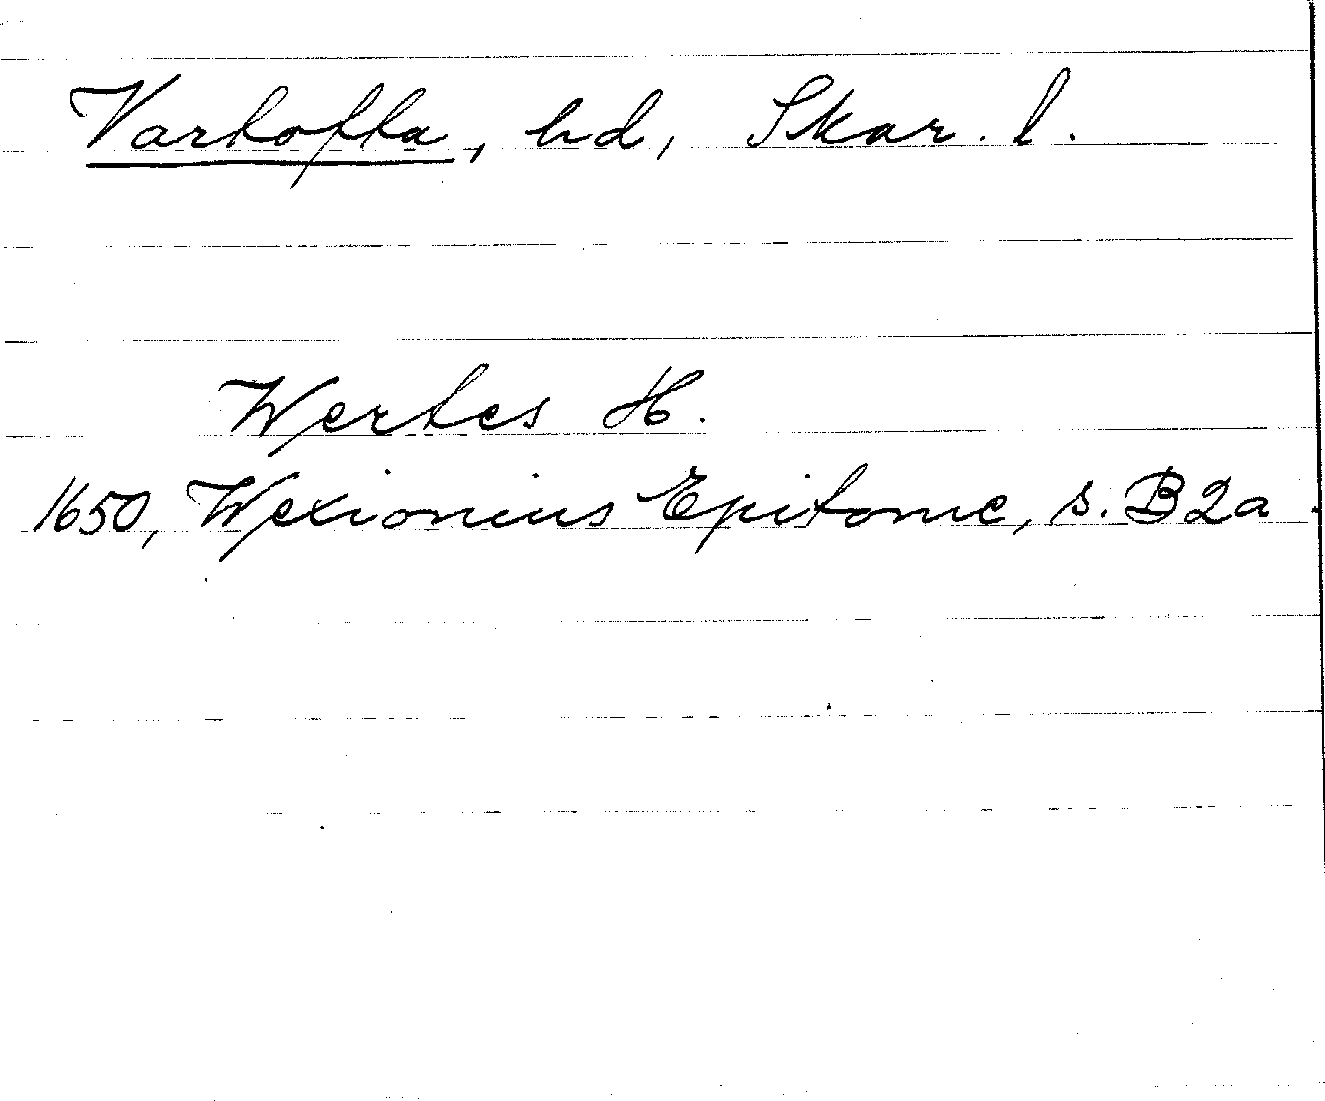 Vartofta, hd, Skar. l.
Wertes H.
1650, Wexionius Epitome, s. B2a.